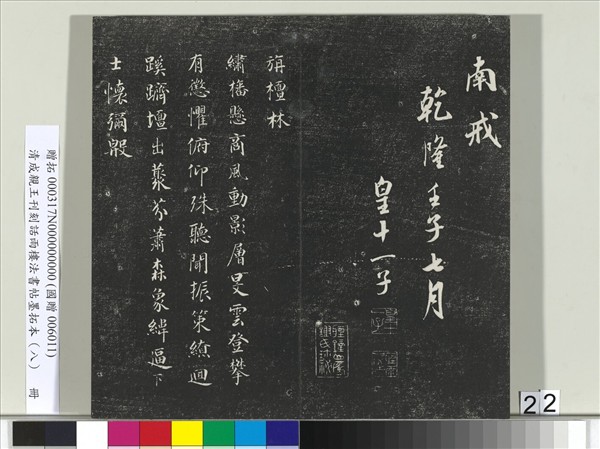 南戒
乾隆壬子七月
皇十一子
旃檀林
繡櫓懸高風動影層旻雲登攀
有愆懼俯仰殊聽聞振策繚迴
蹊躋壇出氛蕭森象緯逼下
士懷彌殷
贈拓 000317N000000000 (國贈 006011)
清成親王刊刻話雨樓法書帖墨拓本（八） 冊
22